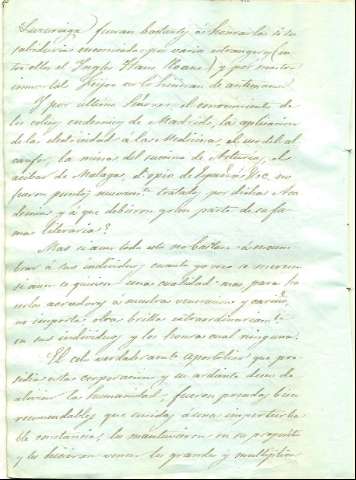 Luzuriaga fueran bastantes á honrarla si su
sabiduria encomiada por varios estrangeros (en
tre ellos el Ingles Hans Sloane) y por nuestro
inmortal Feijoo no lo hicieran de antemano.
Y por ultimo Señores, el conocimiento de
los colicos endemicos de Madrid, la aplicacion
de la electricidad á la Medicina, el
canfor, la mina del succino de Asturias, el
azibar de Malaga, el opio de España &c. no
fueron puntos nuevam.te tratados por dichas Aca
demias y á que debieron gran parte de su fa
ma literaria?
Mas si aun todo esto no bastase á
brar á sus individuos cuanto yo creo se merecen
si aun se quisiera una cualidad mas para ha
cerlos acreedores á nuestra veneracion y cariño,
no importa, otra brilla extraordinariam.te
en sus individuos y los honra cual ninguna.
El celo verdaderam.te apostolico que pre
sidia estas corporaciones y su ardiente deseo de
aliviar la humanidad, fueron prendas bien
recomendables que unidas á una imperturba
ble constancia, les mantuvieron en su proposito
y les hicieron vencer los grandes y multiplica